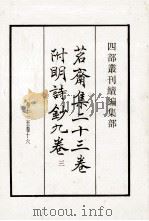 四部叢刊續編集部
茗齋集二十三卷
附明詩鈔九卷
三